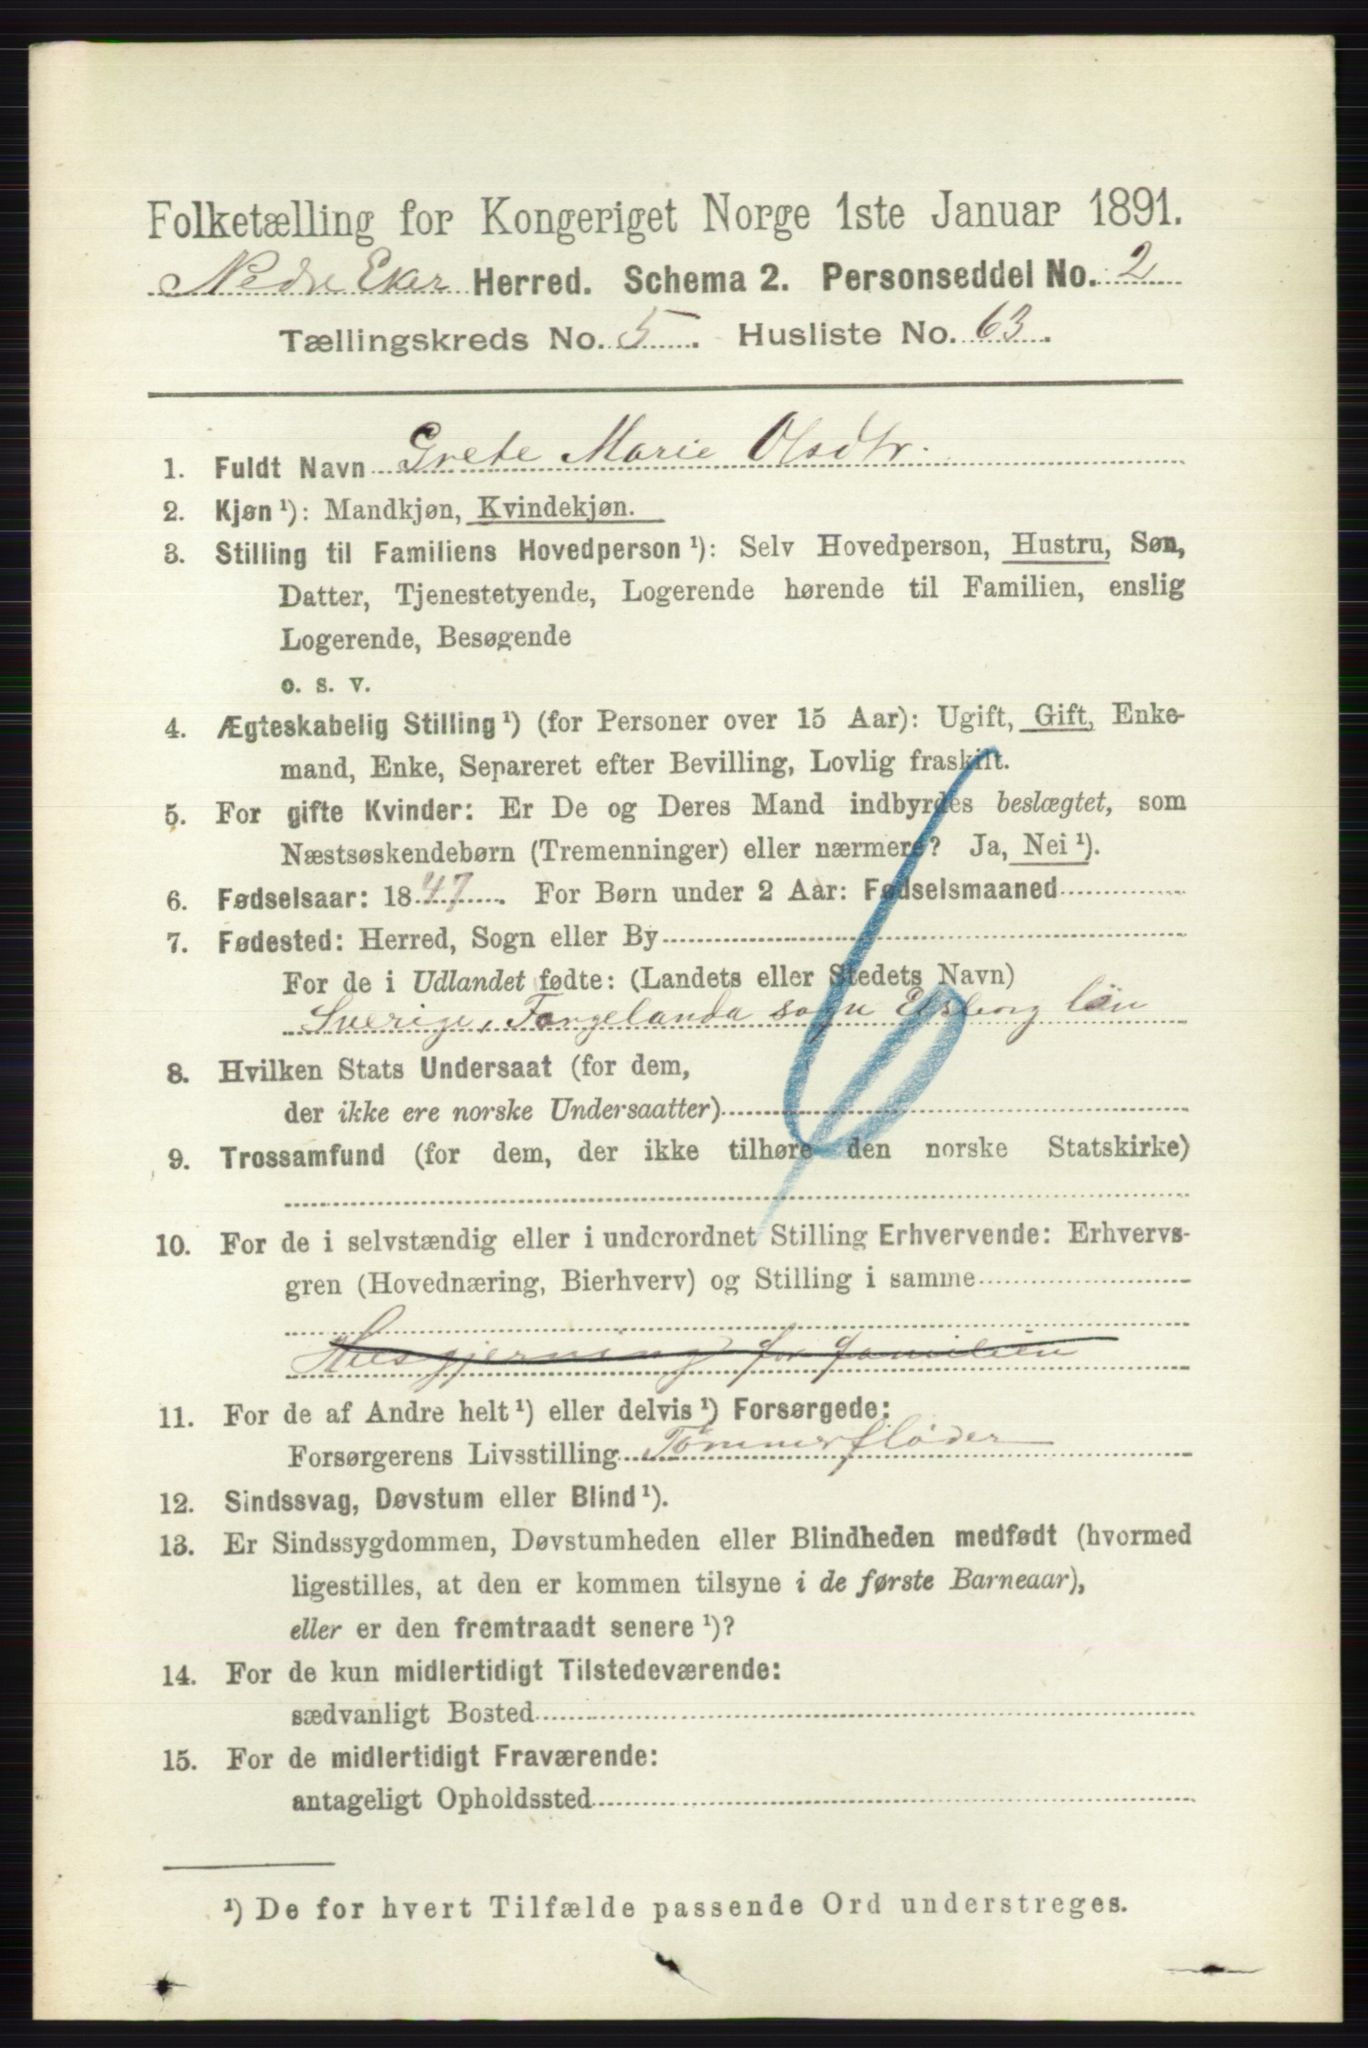 Folketælling for Kongeriget Norge 1ste Januar 1891.
Nedre Eker Herred. Schema 2. Personseddel No. 2
Tællingskreds No. 5. Husliste No. 63.
1. Fuldt Navn Grete Marie Olsdtr.
2. Kjøn ¹): Mandkjøn, Kvindekjøn.
3. Stilling til Familiens Hovedperson ¹): Selv Hovedperson, Hustru, Søn,
Datter, Tjenestetyende, Logerende hørende til Familien, enslig
Logerende, Besøgende
o. s. v.
4. Ægteskabelig Stilling ¹) (for Personer over 15 Aar): Ugift, Gift, Enke-
mand, Enke, Separeret efter Bevilling, Lovlig fraskilt.
5. For gifte Kvinder: Er De og Deres Mand indbyrdes beslægtet, som
Næstsøskendebørn (Tremenninger) eller nærmere? Ja, Nei ¹).
6. Fødselsaar: 1847. For Børn under 2 Aar: Fødselsmaaned
7. Fødested: Herred, Sogn eller By
For de i Udlandet fødte: (Landets eller Stedets Navn)
Sverige, Fargelanda sogn Elsborg län
8. Hvilken Stats Undersaat (for dem,
der ikke ere norske Undersaatter)
9. Trossamfund (for dem, der ikke tilhøre den norske Statskirke)
10. For de i selvstændig eller i underordnet Stilling Erhvervende: Erhvervs-
gren (Hovednæring, Bierhverv) og Stilling i samme
Husgjerning for familien
11. For de af Andre helt ¹) eller delvis ¹) Forsørgede:
Forsørgerens Livsstilling Tömmerflöder
12. Sindssvag, Døvstum eller Blind ¹).
13. Er Sindssygdommen, Døvstumheden eller Blindheden medfødt (hvormed
ligestilles, at den er kommen tilsyne i de første Barneaar),
eller er den fremtraadt senere ¹)?
14. For de kun midlertidigt Tilstedeværende:
sædvanligt Bosted
15. For de midlertidigt Fraværende:
antageligt Opholdssted
¹) De for hvert Tilfælde passende Ord understreges.